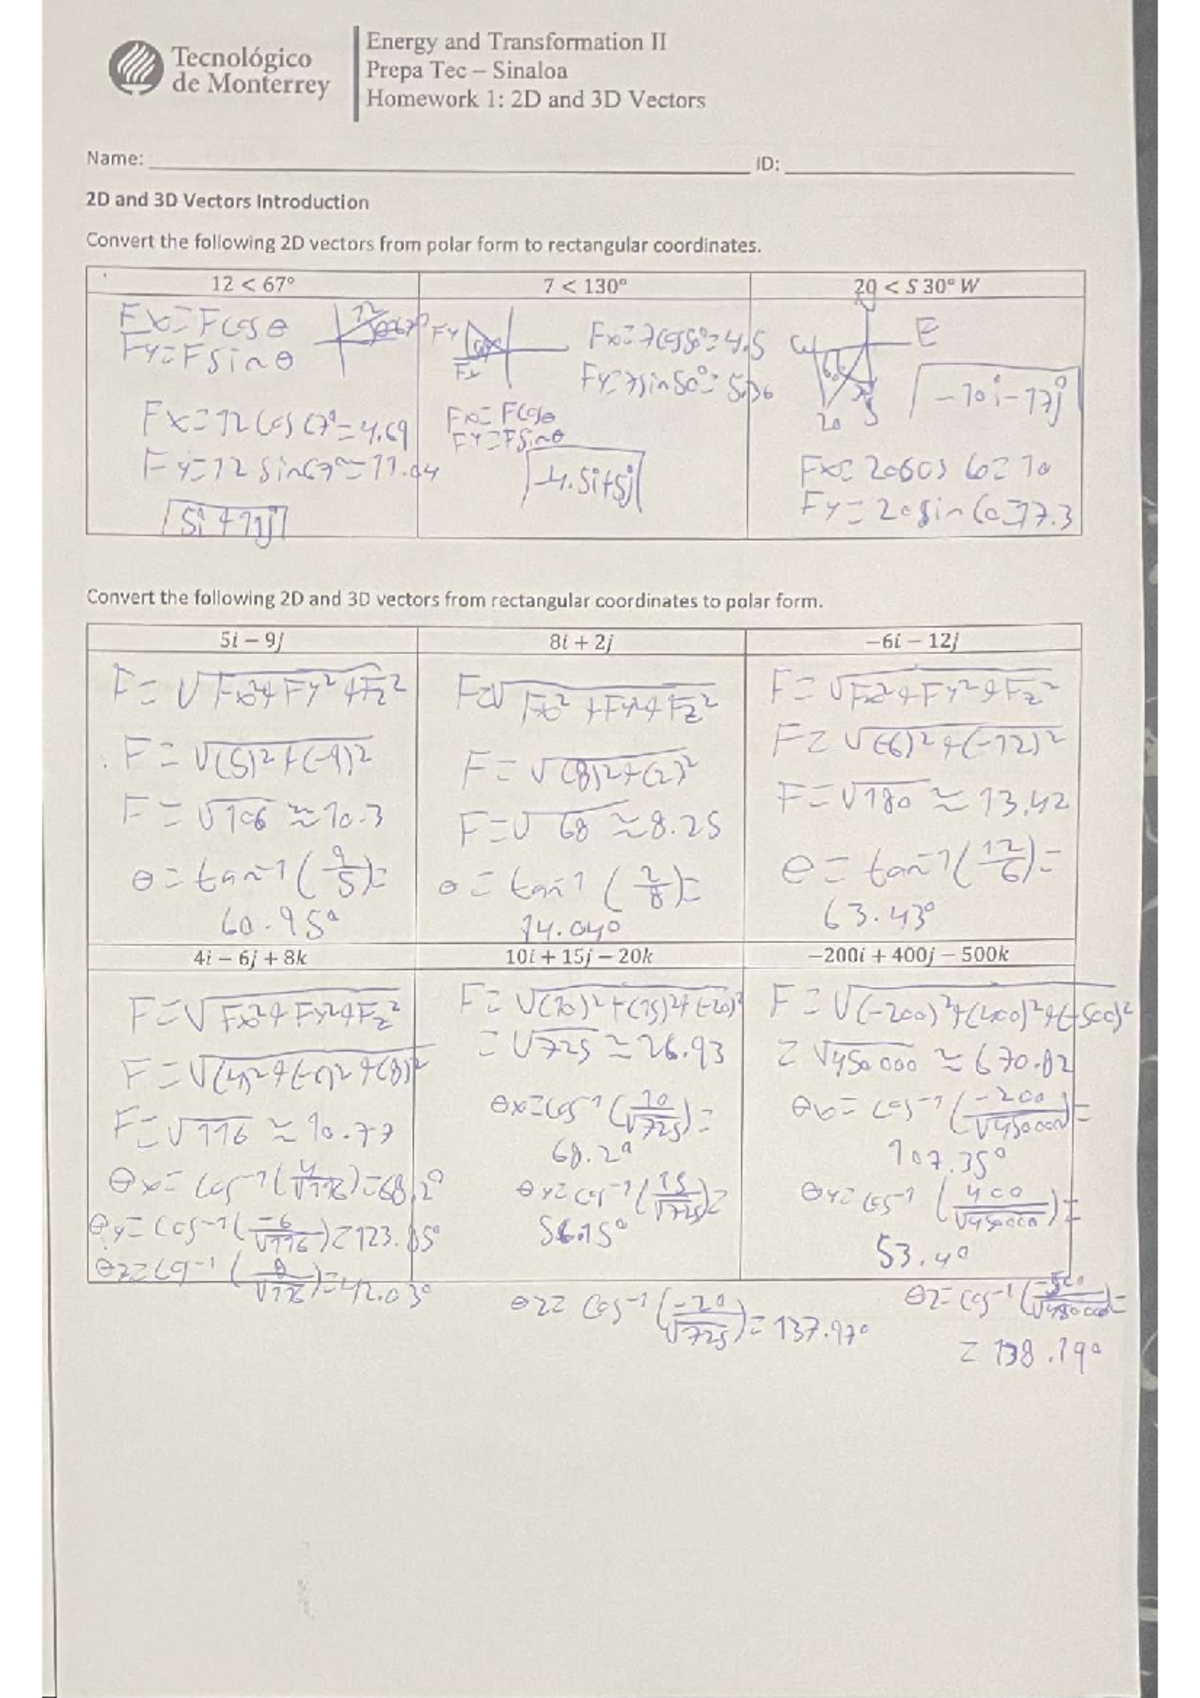 Tecnológico
de Monterrey
Energy and Transformation II
Prepa Tec – Sinaloa
Homework 1: 2D and 3D Vectors
Name: ID:
2D and 3D Vectors Introduction
Convert the following 2D vectors from polar form to rectangular coordinates.
12 < 67°
Fx=Fcosθ
Fy=Fsinθ
12
Fx=12cos67°=4.69
Fy=12 sin67°=11.04
5i+11j
7 < 130°
Fy
Fx
Fx=7cos50°=4.5
Fy=7sin50°=5.36
Fx=Fcosθ
Fy=Fsinθ
-4.5i+5j
20 < S 30° W
E
20 S
-10i-17j
Fx=20cos 60=10
Fy=20sin60=17.3
Convert the following 2D and 3D vectors from rectangular coordinates to polar form.
5i – 9j
F=√Fx²+Fy²+Fz²
F=√(5)²+(-9)²
F=√106≈10.3
θ=tan-1(9/5)=
60.95°
8i + 2j
F=√Fx²+Fy²+Fz²
F=√(8)²+(2)²
F=√68≈8.25
θ=tan-1(2/8)=
14.04°
–6i – 12j
F=√Fx²+Fy²+Fz²
F=√(-6)²+(-12)²
F=√180≈13.42
θ=tan-1(12/6)=
63.43°
4i – 6j + 8k
F=√Fx²+Fy²+Fz²
F=√(4)²+(-6)²+(8)²
F=√116≈10.77
θx=cos-1(4/√116)=68.2°
θy=cos-1(-6/√116)=123.85°
θz=cos-1(8/√116)=42.03°
10i + 15j – 20k
F=√(10)²+(15)²+(-20)²
=√725≈26.93
θx=cos-1(10/√725)=
68.2°
θy=cos-1(15/√725)=
56.15°
θz=cos-1(-20/√725)=137.97°
–200i + 400j – 500k
F=√(-200)²+(400)²+(-500)²
=√450000≈670.82
θx=cos-1(-200/√450000)=
107.35°
θy=cos-1(400/√450000)=
53.4°
θz=cos-1(-500/√450000)=
=138.19°